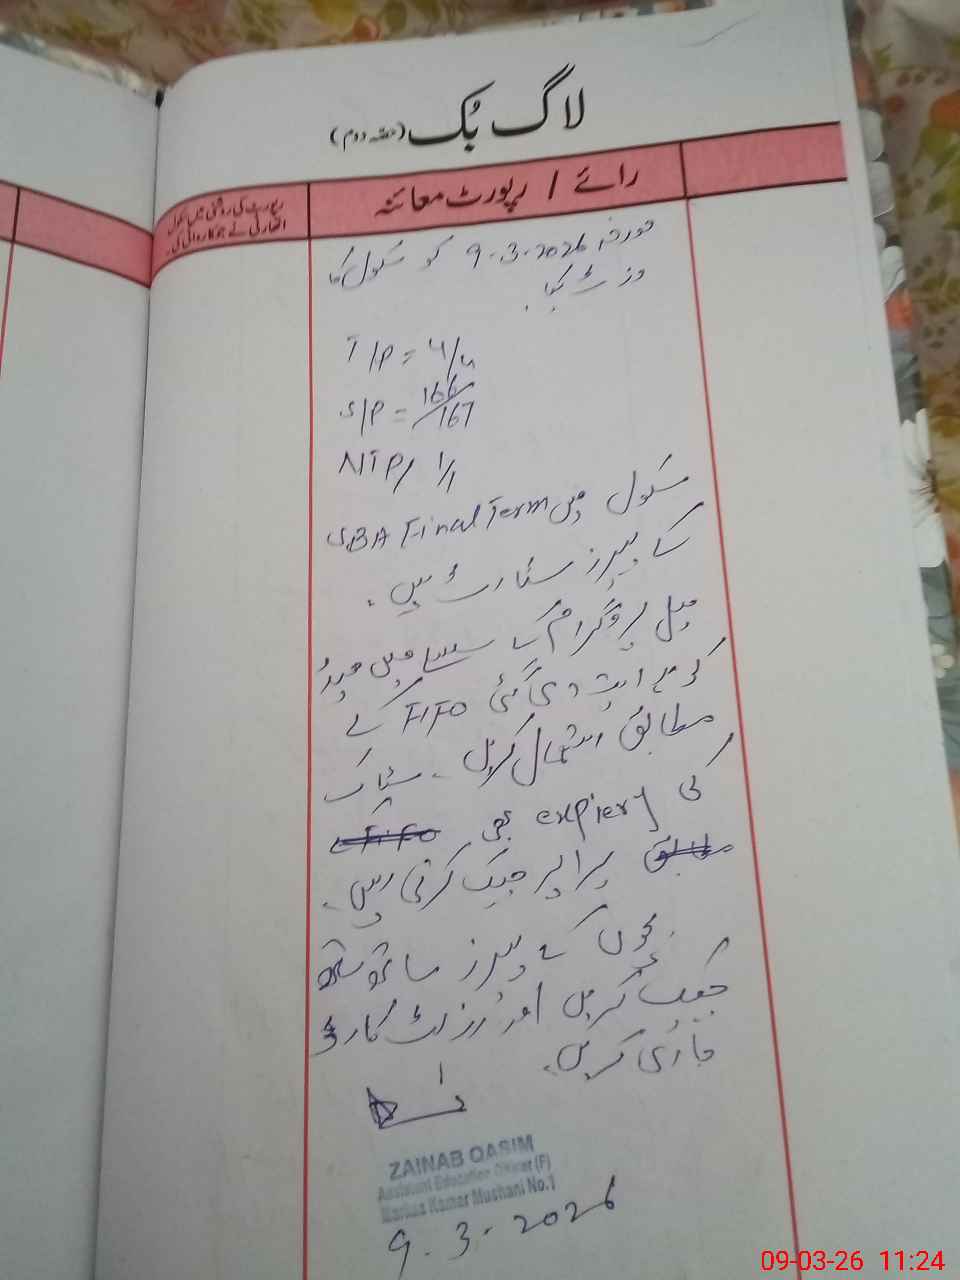 لاگ بُک (حصّہ دوم)
رائے / رپورٹ معائنہ
رپورٹ کی روشنی میں سکول
اتھارٹی نے جو کاروائی کی۔
مورخہ 9.3.2026 کو سکول کا
وزٹ کیا۔
T/P = 4/4
S/P = 166/167
NTP/ 1/1
سکول میں SBA Final Term
کے پیپرز سٹارٹ ہیں۔
میل پروگرام کے سلسلے میں ہیڈ
کو ہدایت دی گئی FIFO کے
مطابق استعمال کریں۔ سٹاک
کی expiery بھی FIFO
مطابق پراپر چیک کرتی رہیں۔
بچوں کے پیپرز ساتھ ساتھ
چیک کریں اور رزلٹ کارڈ
جاری کریں۔
ZAINAB QASIM
Assistant Education Officer (F)
Markaz Kamar Mushani No.1
9.3.2026
09-03-26 11:24